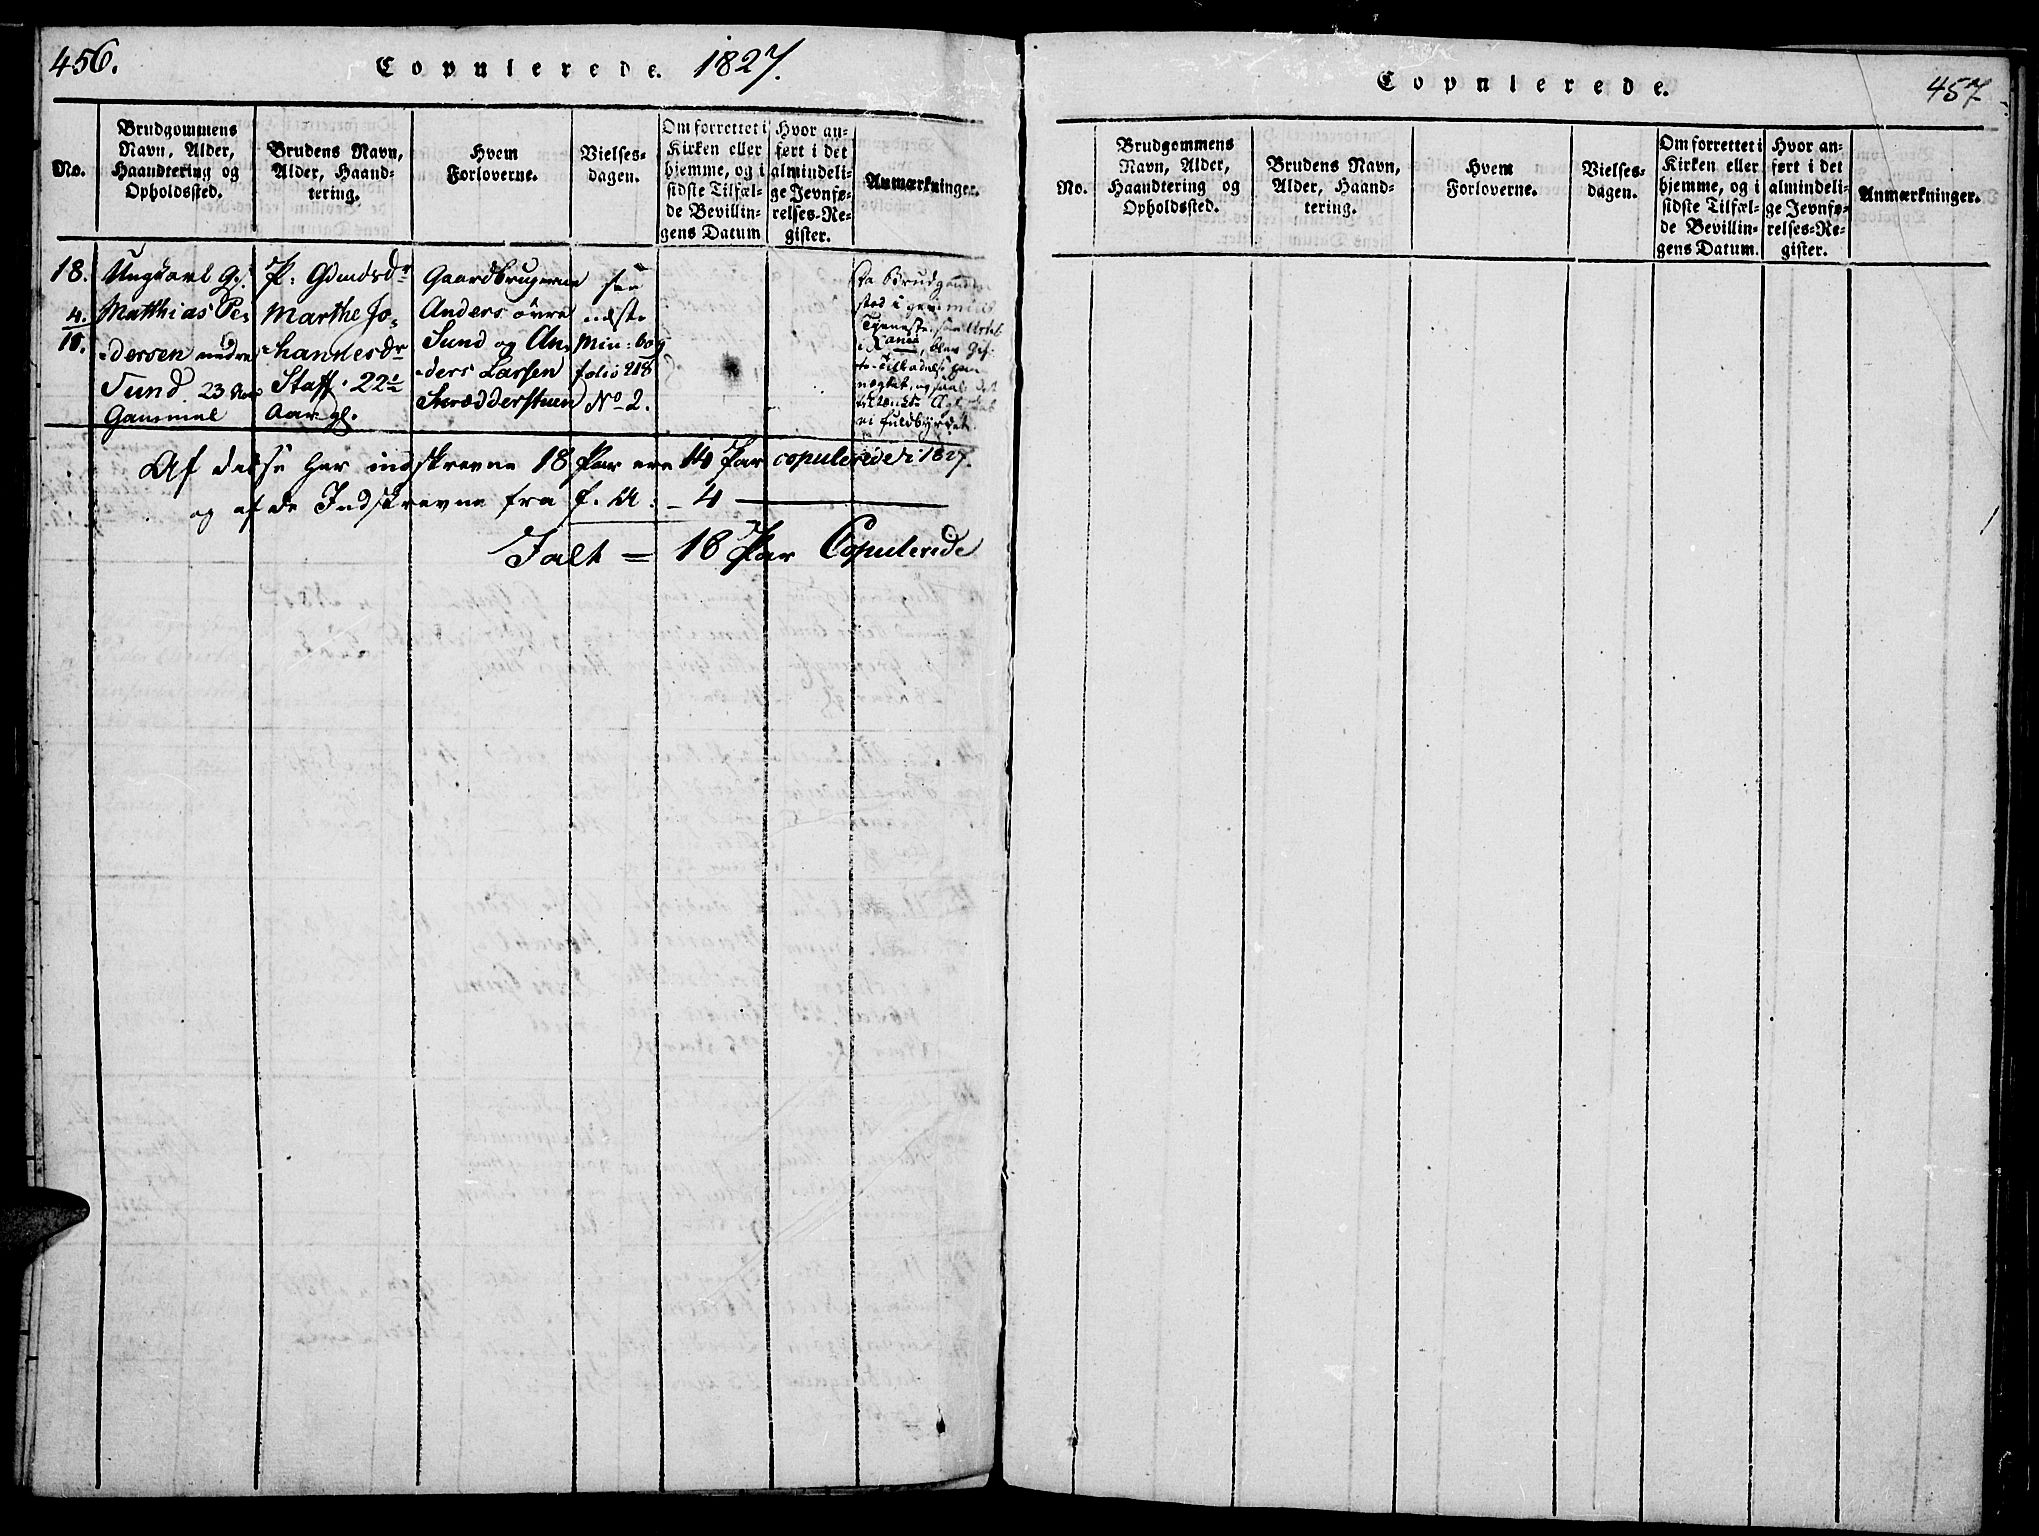 456.
Copulerede. 1827.
No.
Brudgommens
Navn, Alder,
Haandtering og
Opholdssted.
Brudens Navn,
Alder, Haand-
tering.
Hvem
Forloverne.
Vielses-
dagen.
Om forrettet i
Kirken eller
hjemme, og i
sidste Tilfæl-
de Bevillin-
gens Datum
Hvor an-
ført i det
almindeli-
ge Jevnfø-
relses-Re-
gister.
Anmærkninger.
18.
4.
Ungkarl
Matthias Pe-
dersen nedre
Sund. 23 Aar
Gammel
P: Gdmdsdr
Marthe Jo-
hannesdr
Staff. 22½
Aar gl.
Gaardbrugerne
Anders övre
Sund og An-
ders Larsen
Skrædderstuen
see
næste
Min: bog
folio 218
No 2.
da Brudgommen
Tjeneste
blev
nægtet, og
ei fuldbyrdet.
Af disse her indskrevne 18 Par ere 14 Par copulerede i 1827.
og af de Indskrevne fra f. A: - 4 —
Ialt = 18 Par Copulerede
Copulerede.
457
No.
Brudgommens
Navn, Alder,
Haandtering og
Opholdssted.
Brudens Navn,
Alder, Haand-
tering.
Hvem
Forloverne.
Vielses-
dagen.
Om forrettet i
Kirken eller
hjemme, og i
sidste Tilfæl-
de Bevillin-
gens Datum.
Hvor an-
ført i det
almindeli-
ge Jevnfø-
relses-Re-
gister.
Anmærkninger.